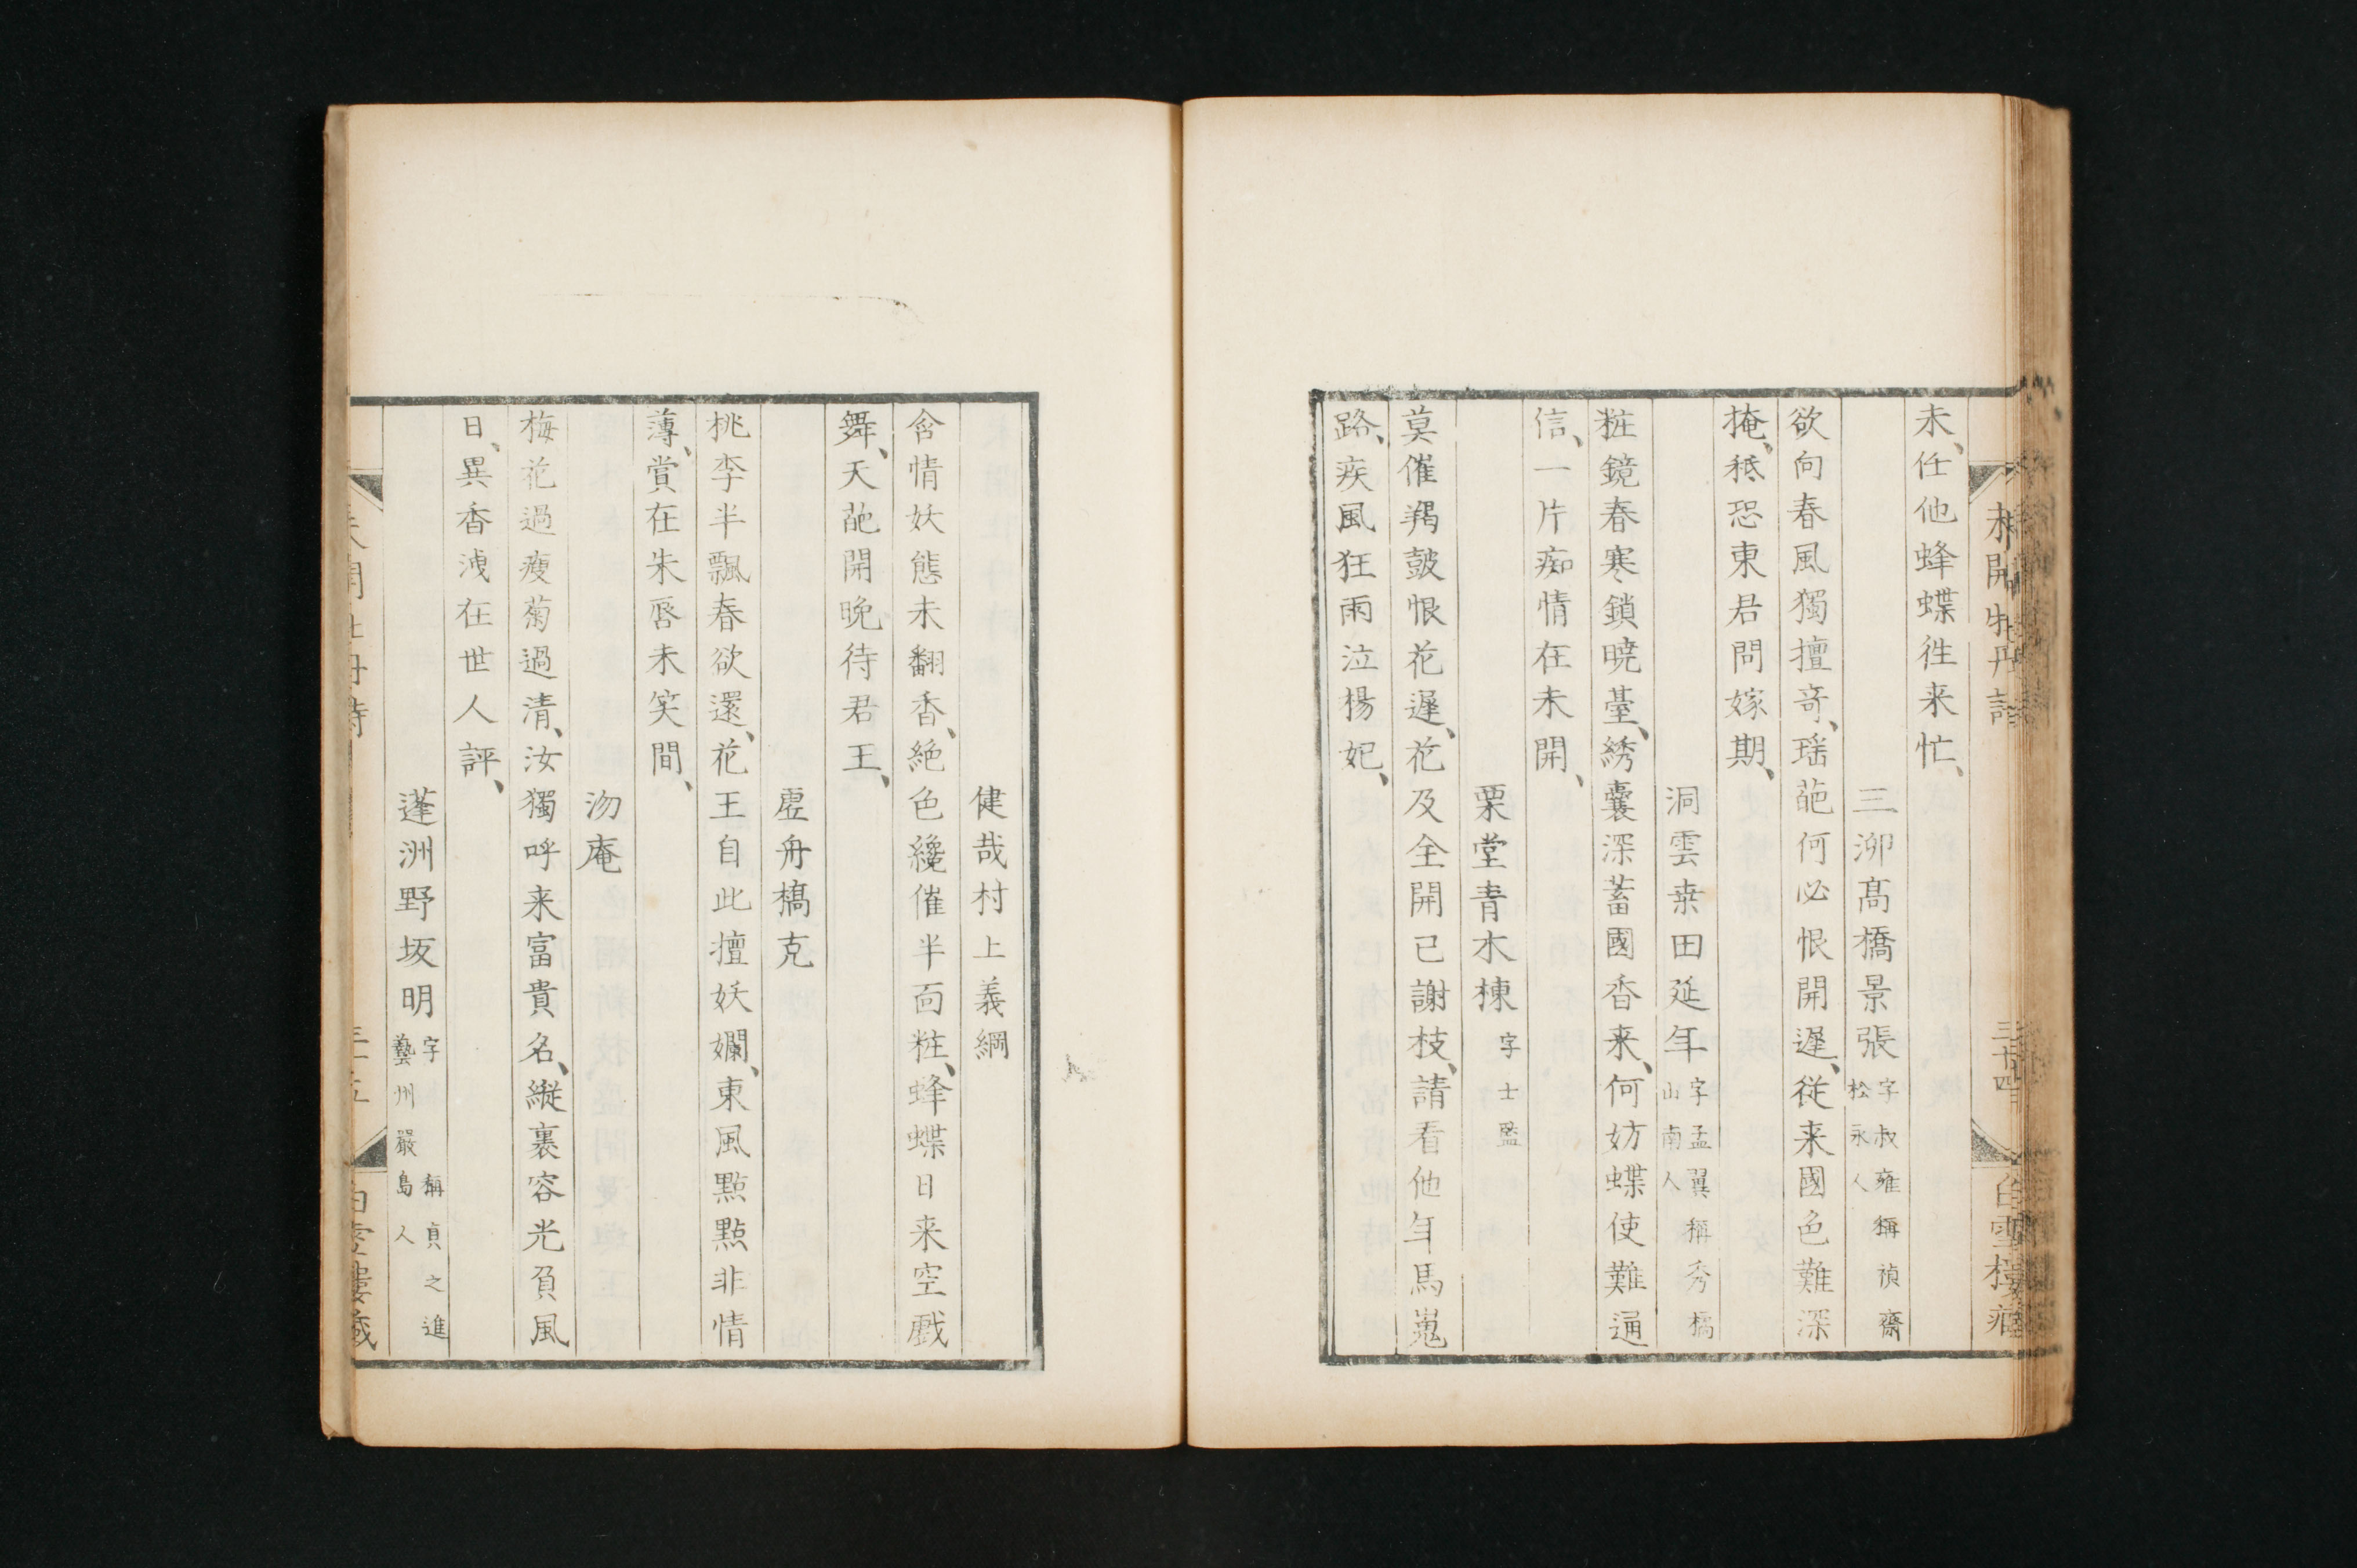 未開牡丹詩
三十四
白雪樓藏
未、任他蜂蝶徃来忙、
三泖髙橋景張 字叔雍稱禎齋 松永人
欲向春風獨擅竒、瑶葩何必恨開遲、従来國色難深
掩、秪恐東君問嫁期、
洞雲桒田延年 字孟翼稱秀橘 山南人
粧鏡春寒鎖曉臺、綉囊深蓄國香来、何妨蝶使難通
信、一片痴情在未開、
栗堂青木棟 字士監
莫催羯皷恨花遲、花及全開已謝枝、請看他年馬嵬
路、疾風狂雨泣楊妃、
健哉村上義綱
含情妖態未翻香、絶色纔催半面粧、蜂蝶日来空戲
舞、天葩開晚待君王、
虚舟槗克
桃李半飄春欲還、花王自此擅妖嫻、東風點點非情
薄、賞在朱唇未笑間、
沕庵
梅花過瘦菊過清、汝獨呼来富貴名、縦裏容光負風
日、異香洩在世人評、
蓬洲野坂明 字 稱貞之進 藝州嚴島人
未開牡丹詩
三十五
白雪樓藏